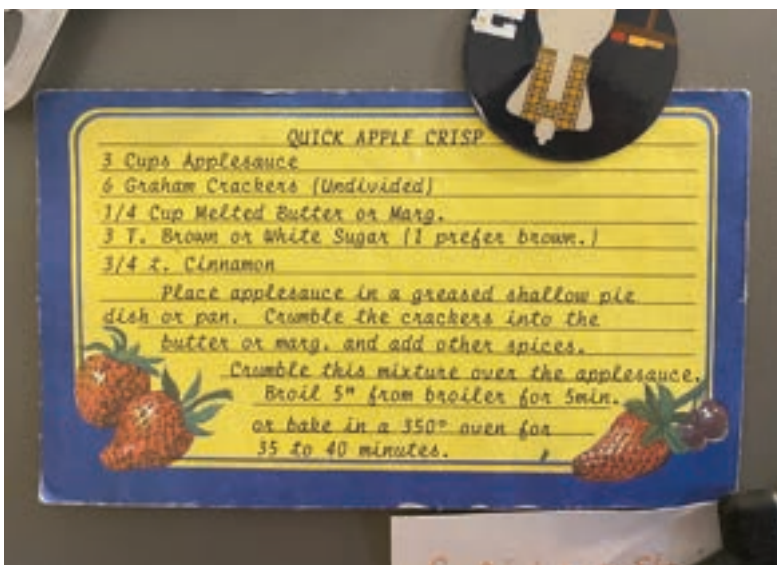 QUICK APPLE CRISP
3 Cups Applesauce
6 Graham Crackers (Undivided)
1/4 Cup Melted Butter or Marg.
3 T. Brown or White Sugar (I prefer brown.)
3/4 t. Cinnamon
Place applesauce in a greased shallow pie
dish or pan. Crumble the crackers into the
butter or marg. and add other spices.
Crumble this mixture over the applesauce.
Broil 5" from broiler for 5min.
or bake in a 350° oven for
35 to 40 minutes.